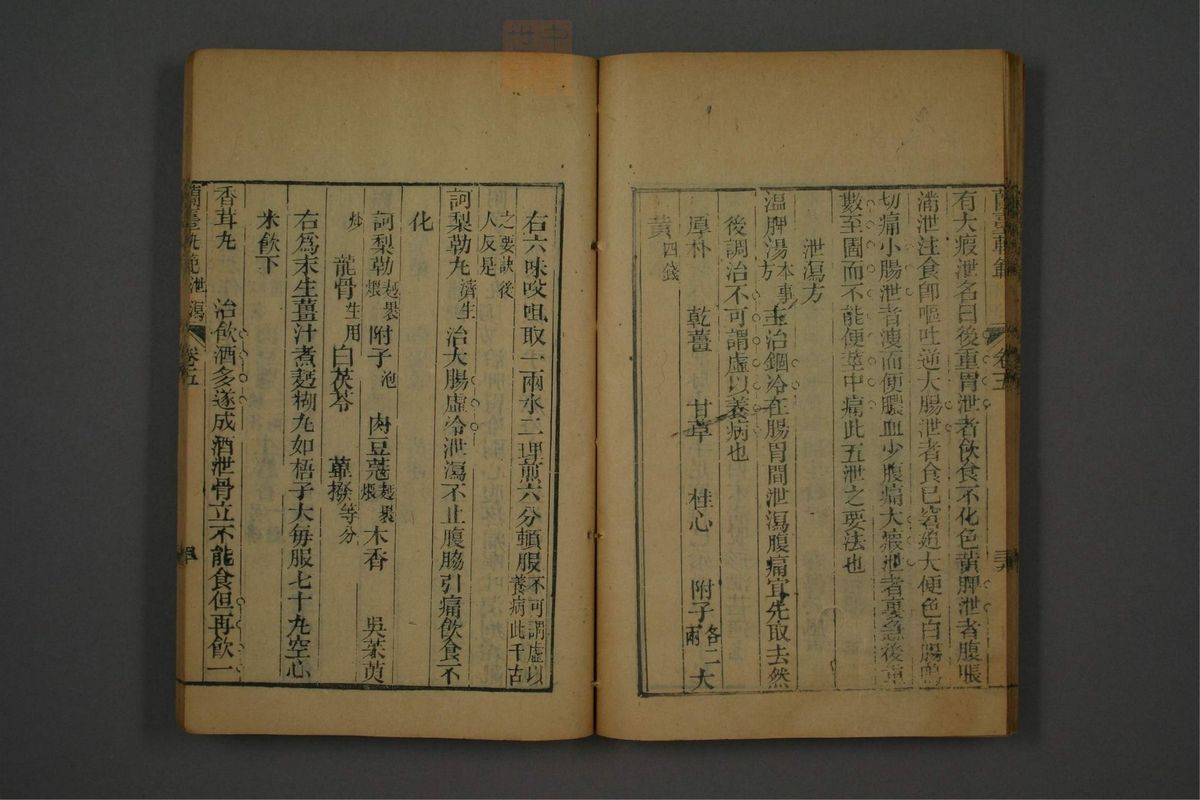 蘭臺軌範 卷五
有大瘕泄名曰後重胃泄者飲食不化色黃脾泄者腹脹
滿泄注食卽嘔吐逆大腸泄者食已窘迫大便色白腸鳴
切痛小腸泄者溲而便膿血少腹痛大瘕泄者裏急後重
數至圊而不能便莖中痛此五泄之要法也
泄瀉方
溫脾湯本事方 主治錮冷在腸胃間泄瀉腹痛宜先取去然
後調治不可謂虛以養病也
厚朴 乾薑 甘草 桂心 附子各二兩 大
黃四錢
右六味㕮咀取一兩水二
煎六分頓服不可謂虛以養病此千古之要訣後人反是
訶梨勒丸濟生 治大腸虛冷泄瀉不止腹脇引痛飲食不
化
訶梨勒麪裹煨 附子泡 肉豆蔻麪裹煨 木香 吳茱萸
炒 龍骨生用 白茯苓 蓽撥等分
右爲末生薑汁煮麪糊丸如梧子大每服七十丸空心
米飲下
香茸丸 治飲酒多遂成酒泄骨立不能食但再飲一
蘭臺軌範 泄瀉 卷五